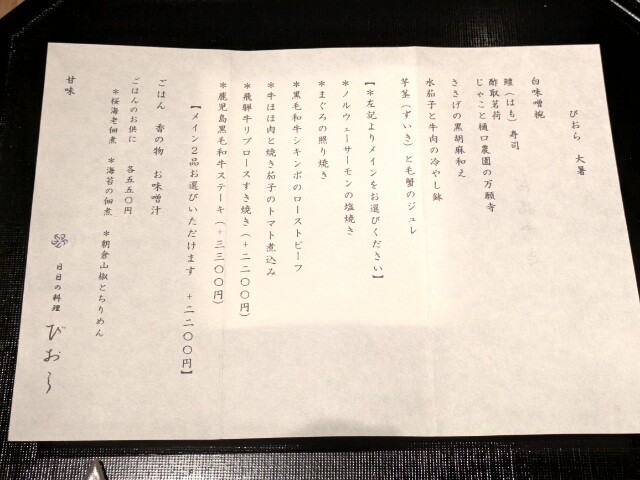 びおら　大暑
白味噌椀
鱧（はも）寿司
酢取茗荷
じゃこと樋口農園の万願寺
ささげの黒胡麻和え
水茄子と牛肉の冷やし鉢
芋茎（ずいき）と毛蟹のジュレ
【＊左記よりメインをお選びください】
＊ノルウェーサーモンの塩焼き
＊まぐろの照り焼き
＊黒毛和牛シキンボのローストビーフ
＊牛ほほ肉と焼き茄子のトマト煮込み
＊飛騨牛リブロースすき焼き（＋二二〇〇円）
＊鹿児島黒毛和牛ステーキ（＋三三〇〇円）
【メイン２品お選びいただけます　＋二二〇〇円】
ごはん　香の物　お味噌汁
ごはんのお供に　各五五〇円
＊桜海老佃煮　＊海苔の佃煮　＊朝倉山椒とちりめん
甘味
日日の料理　びおら